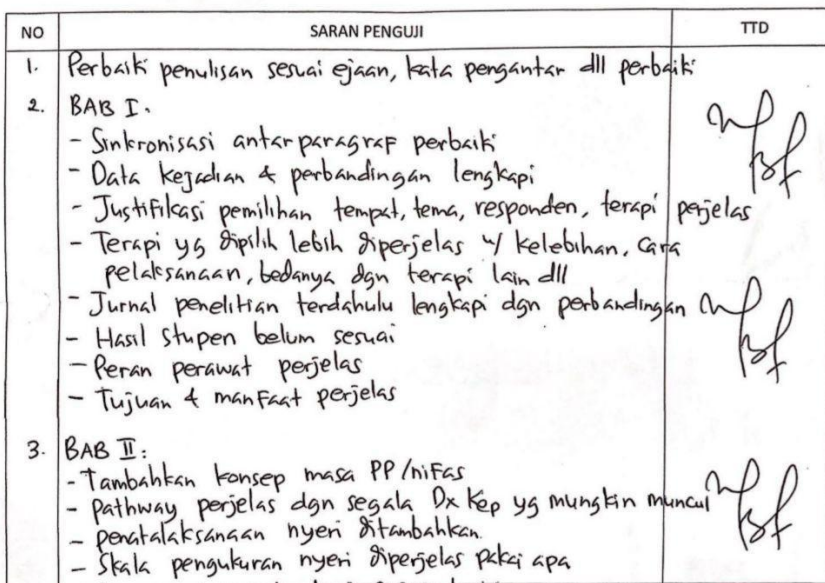 NO SARAN PENGUJI TTD
1. Perbaiki penulisan sesuai ejaan, kata pengantar dll perbaiki
2. BAB I.
- Sinkronisasi antar paragraf perbaiki
- Data kejadian & perbandingan lengkapi
- Justifikasi pemilihan tempat, tema, responden, terapi perjelas
- Terapi yg dipilih lebih diperjelas u/ kelebihan, cara
pelaksanaan, bedanya dgn terapi lain dll
- Jurnal penelitian terdahulu lengkapi dgn perbandingan
- Hasil stupen belum sesuai
- Peran perawat perjelas
- Tujuan & manfaat perjelas
3. BAB II:
- Tambahkan konsep masa PP/nifas
- pathway perjelas dgn segala Dx Kep yg mungkin muncul
- penatalaksanaan nyeri ditambahkan
- Skala pengukuran nyeri diperjelas pakai apa